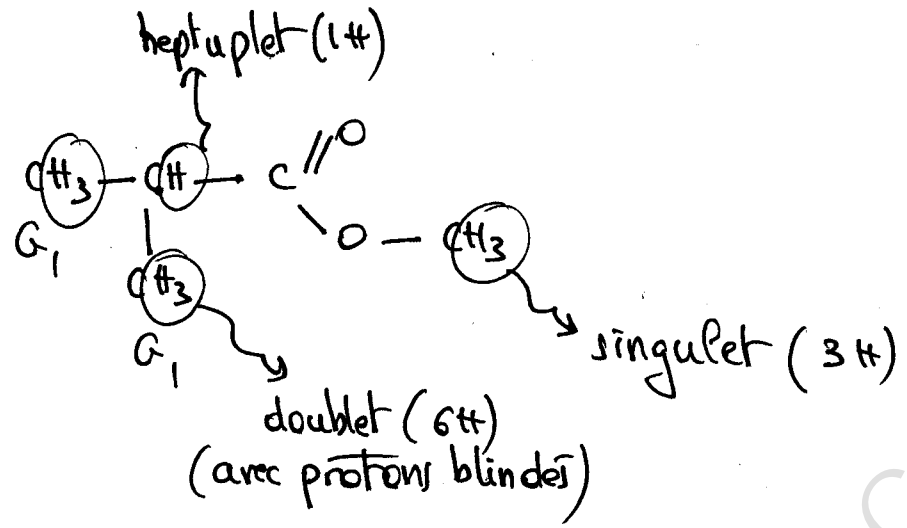 heptuplet (1H)
CH3 - CH - C
O
O - CH3
G1
CH3
G1
singulet (3H)
doublet (6H)
(avec protons blindés)